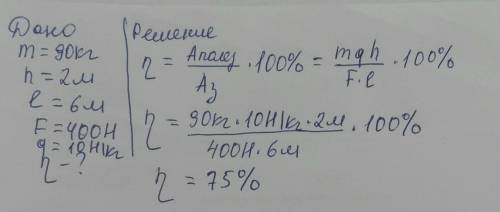 Дано
m = 90кг
h = 2м
l = 6м
F = 400Н
g = 10Н/кг
η - ?
Решение
η = Aполез / Aз · 100% = mgh / F·l · 100%
η = 90кг · 10Н/кг · 2м / 400Н · 6м · 100%
η = 75%